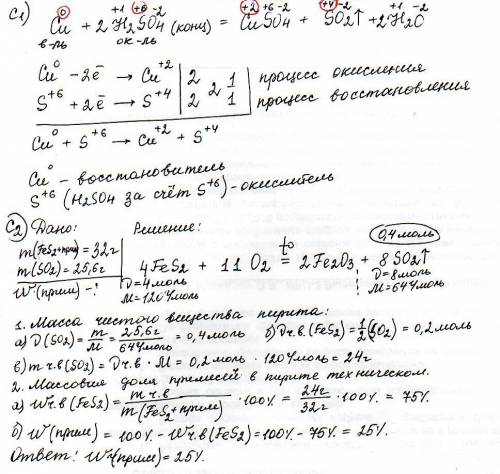 С1) 0 +1 +6 -2 +2 +6 -2 +4 -2 +1 -2
Cu + 2H₂SO₄ (конц) = CuSO₄ + SO₂↑ + 2H₂O
в-ль ок-ль
Cu⁰ - 2ē → Cu⁺² | 2 | 2 | 1 | процесс окисления
S⁺⁶ + 2ē → S⁺⁴ | 2 | 1 | процесс восстановления
Cu⁰ + S⁺⁶ → Cu⁺² + S⁺⁴
Cu⁰ - восстановитель
S⁺⁶ (H₂SO₄ за счёт S⁺⁶) - окислитель
С2) Дано: Решение:
m(FeS₂+прим) = 32г 0,4моль
m(SO₂) = 25,6г 4FeS₂ + 11O₂ =t°= 2Fe₂O₃ + 8SO₂↑
W(прим) -! ν=4моль ν=8моль
M=120г/моль M=64г/моль
1. Масса чистого вещества пирита:
а) ν(SO₂) = m/M = 25,6г/64г/моль = 0,4моль б) νч.в.(FeS₂) = 1/2ν(SO₂) = 0,2моль
в) m ч.в(SO₂) = νч.в · M = 0,2моль · 120г/моль = 24г
2. Массовая доля примесей в пирите техническом.
а) Wч.в(FeS₂) = m ч.в/m(FeS₂+прим) · 100% = 24г/32г · 100% = 75%
б) W(прим) = 100% - Wч.в(FeS₂) = 100% - 75% = 25%.
Ответ: W(прим) = 25%.